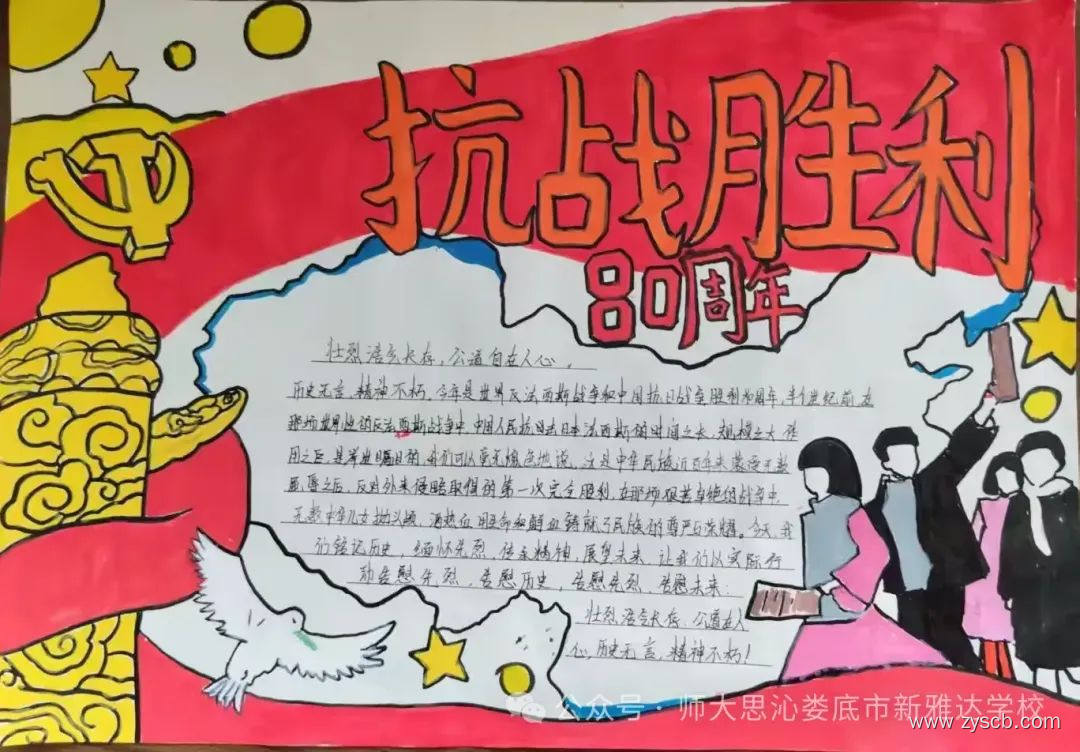 抗战胜利
80周年
壮烈浩气长存，公道自在人心。
历史无言，精神不朽。今年是世界反法西斯战争和中国抗日战争胜利80周年，半个世纪前，在
那场世界性的反法西斯战争中，中国人民抗击日本法西斯的时间之长，规模之大，作
用之巨，是举世瞩目的，我们可以毫无愧色地说，这是中华民族近百年来蒙受无数
屈辱之后，反对外来侵略取得的第一次完全胜利，在那场艰苦卓绝的战争中
无数中华儿女抛头颅，洒热血，用生命和鲜血铸就了民族的尊严与荣耀。今天，我
们铭记历史，缅怀先烈，传承精神，展望未来，让我们以实际行
动告慰先烈，告慰历史，告慰先烈，告慰未来：
壮烈浩气长存，公道在人
心，历史无言，精神不朽！
公众号·师大思沁娄底市新雅达学校
www.zyscb.com